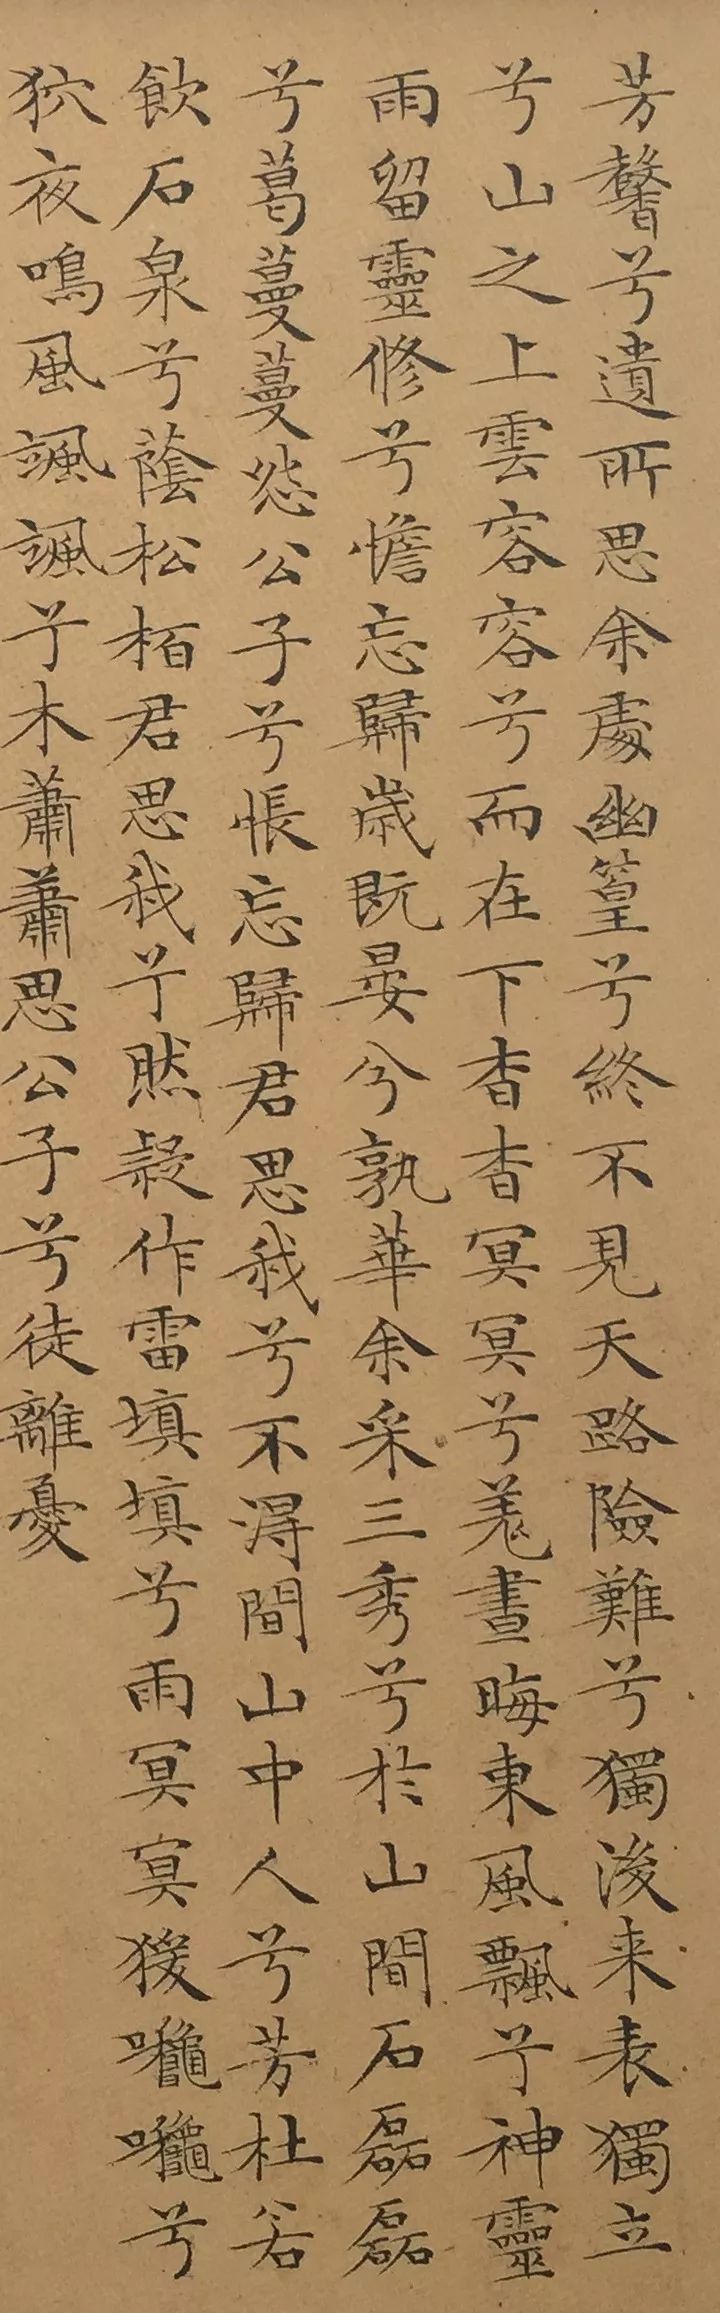 芳馨兮遺所思余處幽篁兮終不見天路險難兮獨後来表獨立
兮山之上雲容容兮而在下杳杳冥冥兮羌晝晦東風飄兮神靈
雨留靈修兮憺忘歸歲既晏兮孰華余采三秀兮於山間石磊磊
兮葛蔓蔓怨公子兮悵忘歸君思我兮不淂間山中人兮芳杜若
飲石泉兮蔭松栢君思我兮然疑作雷填填兮雨冥冥猨嚨嚨兮
狖夜鳴風颯颯兮木蕭蕭思公子兮徒離憂